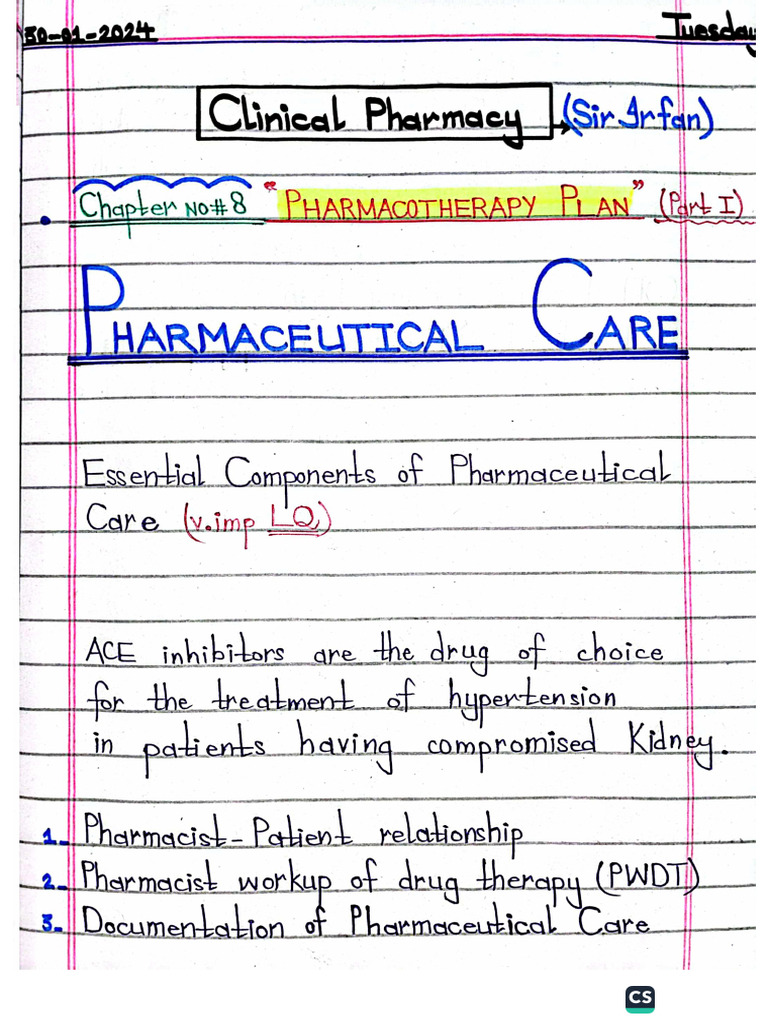 30-01-2024 Tuesday
Clinical Pharmacy (Sir Irfan)
Chapter NO# 8 "PHARMACOTHERAPY PLAN" (Part I)
PHARMACEUTICAL CARE
Essential Components of Pharmaceutical
Care (v.imp LQ)
ACE inhibitors are the drug of choice
for the treatment of hypertension
in patients having compromised Kidney.
1- Pharmacist-Patient relationship
2- Pharmacist workup of drug therapy (PWDT)
3- Documentation of Pharmaceutical Care
CS